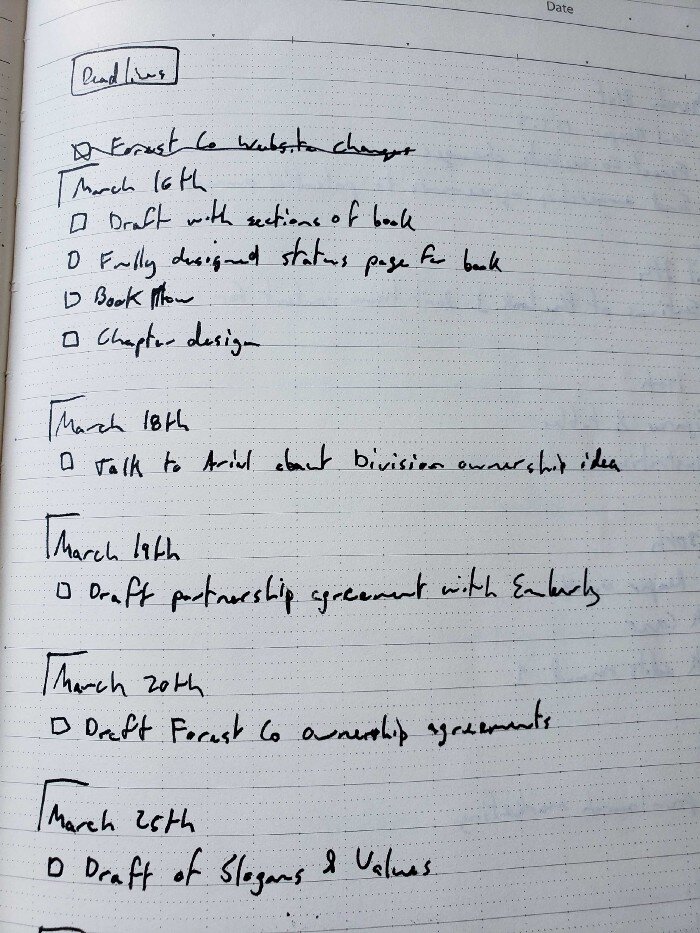 Date
Deadlines
Forest Co website changes
March 16th
Draft with sections of book
Fully designed status page for book
Book flow
Chapter design
March 18th
Talk to Ariel about Division ownership idea
March 19th
Draft partnership agreement with
March 20th
Draft Forest Co ownership agreements
March 25th
Draft of Slogans & Values